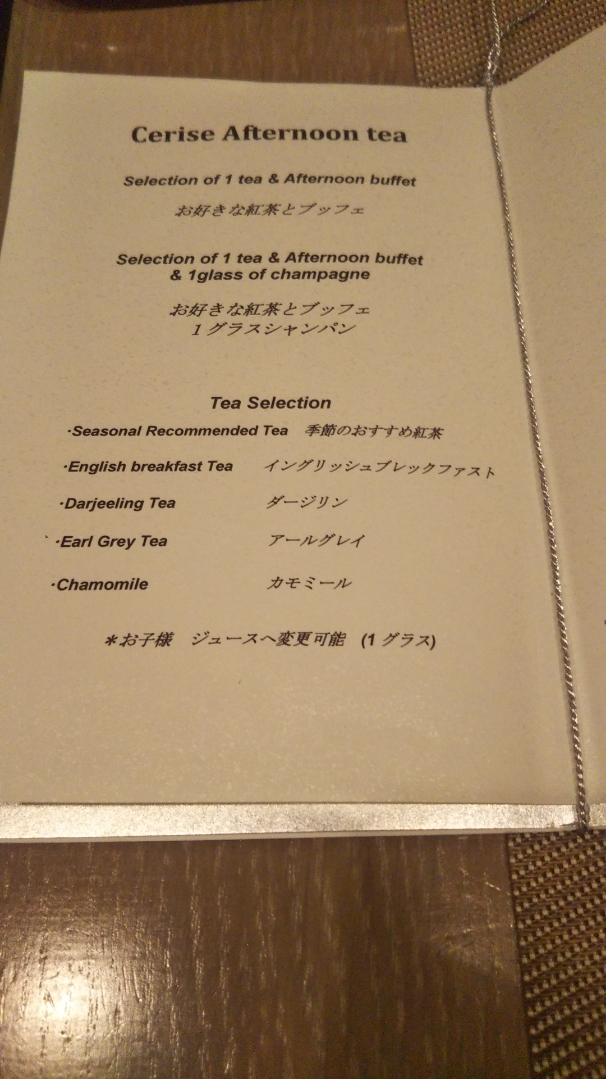 Cerise Afternoon tea
Selection of 1 tea & Afternoon buffet
お好きな紅茶とブッフェ
Selection of 1 tea & Afternoon buffet
& 1glass of champagne
お好きな紅茶とブッフェ
1グラスシャンパン
Tea Selection
・Seasonal Recommended Tea 季節のおすすめ紅茶
・English breakfast Tea イングリッシュブレックファスト
・Darjeeling Tea ダージリン
・Earl Grey Tea アールグレイ
・Chamomile カモミール
＊お子様 ジュースへ変更可能 (1グラス)